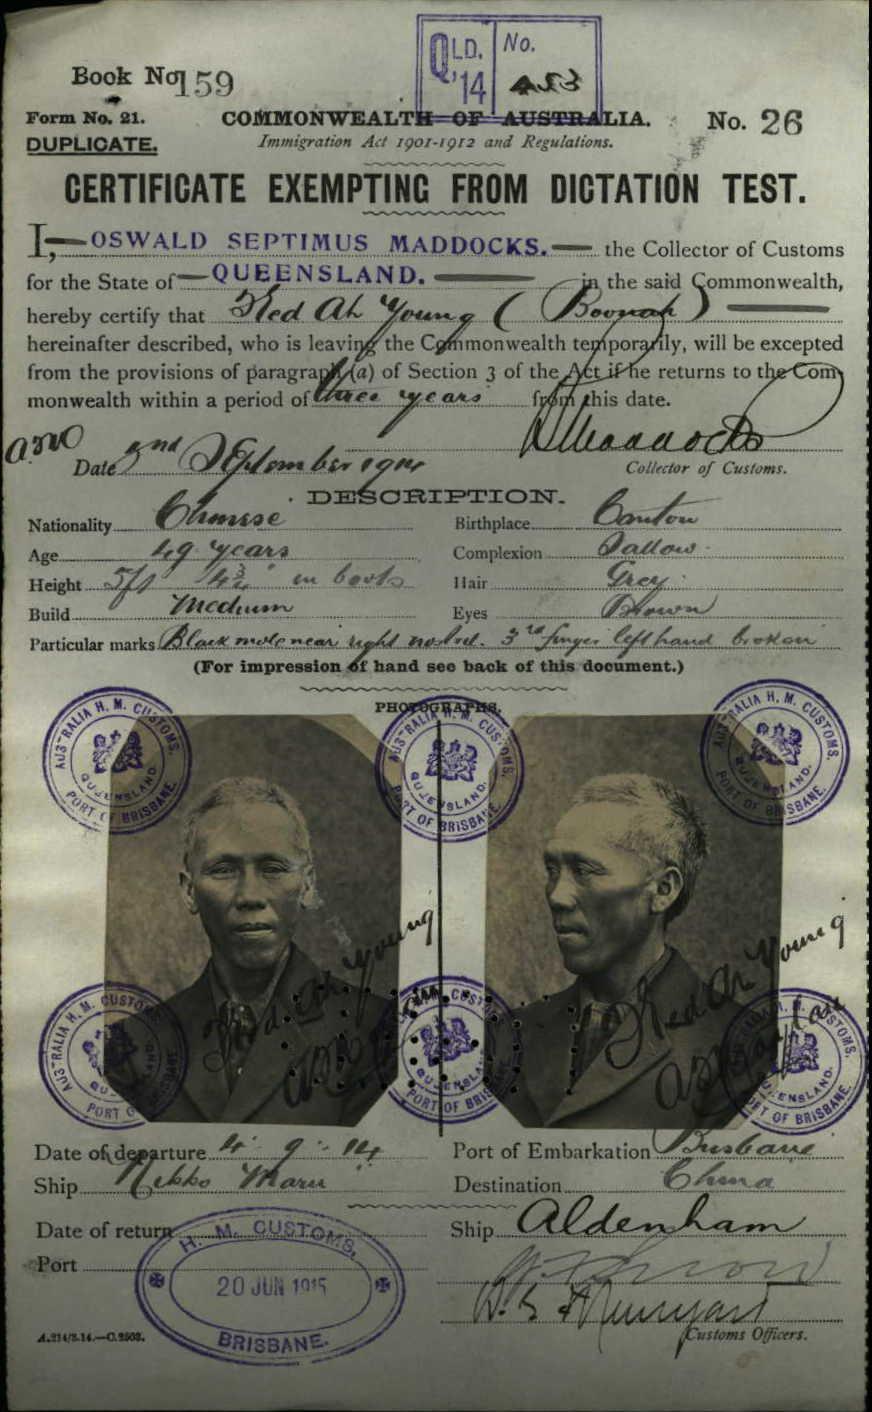 QLD. '14 No. 453
Book No. 159
Form No. 21.
COMMONWEALTH OF AUSTRALIA. No. 26
DUPLICATE.
Immigration Act 1901-1912 and Regulations.
CERTIFICATE EXEMPTING FROM DICTATION TEST.
I, OSWALD SEPTIMUS MADDOCKS. the Collector of Customs
for the State of QUEENSLAND. in the said Commonwealth,
hereby certify that Ked Ah Young (Boonah)
hereinafter described, who is leaving the Commonwealth temporarily, will be excepted
from the provisions of paragraph (a) of Section 3 of the Act if he returns to the Com-
monwealth within a period of three years from this date.
Date 2nd September 1914
Collector of Customs.
DESCRIPTION.
Nationality Chinese Birthplace Canton
Age 49 years Complexion Sallow
Height 5ft 4¾" in boots Hair Grey
Build Medium Eyes Brown
Particular marks Black mole near right nostril. 3rd finger left hand broken
(For impression of hand see back of this document.)
PHOTOGRAPHS.
AUSTRALIA H. M. CUSTOMS. QUEENSLAND. PORT OF BRISBANE.
AUSTRALIA H. M. CUSTOMS. QUEENSLAND. PORT OF BRISBANE.
AUSTRALIA H. M. CUSTOMS. QUEENSLAND. PORT OF BRISBANE.
Ked Ah Young
Ked Ah Young
AUSTRALIA H. M. CUSTOMS. QUEENSLAND. PORT OF BRISBANE.
AUSTRALIA H. M. CUSTOMS. QUEENSLAND. PORT OF BRISBANE.
AUSTRALIA H. M. CUSTOMS. QUEENSLAND. PORT OF BRISBANE.
Date of departure 4. 9. 14 Port of Embarkation Brisbane
Ship Nikko Maru Destination China
Date of return Ship Aldenham
Port
H. M. CUSTOMS,
20 JUN 1915
BRISBANE.
A.214/3.14.—C.2503.
Customs Officers.